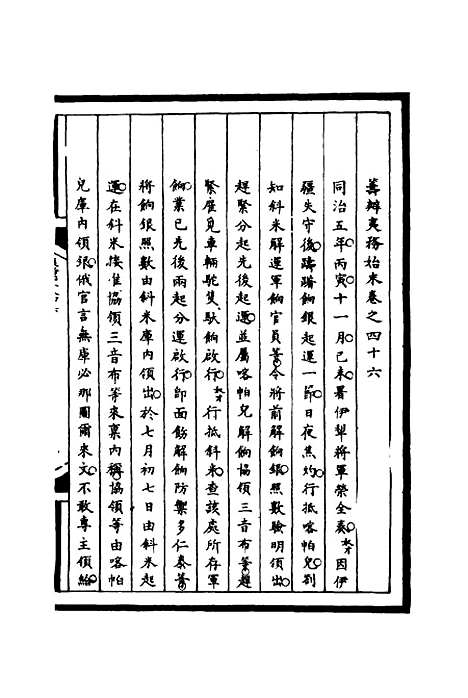 籌辦夷務始末卷之四十六
同治五年丙寅十一月己未署伊犁將軍榮全奏奴才因伊
疆失守後躊躇餉銀起運一節日夜焦灼行抵喀帕兒別
知斜米解運軍餉官員等令將前解餉銀照數驗明領出
趕緊分起先後起運並屬喀帕兒解餉協領三音布等趕
緊雇覓車輛駝隻馱餉啟行奴才行抵斜米查該處所存軍
餉業已先後兩起分運啟行即面飭解餉防禦多仁泰等
將餉銀照數由斜米庫內領出於七月初七日由斜米起
運在斜米接准協領三音布等來稟內稱協領等由喀帕
兒庫內領銀俄官言無庫必那圖爾來文不敢專主領給